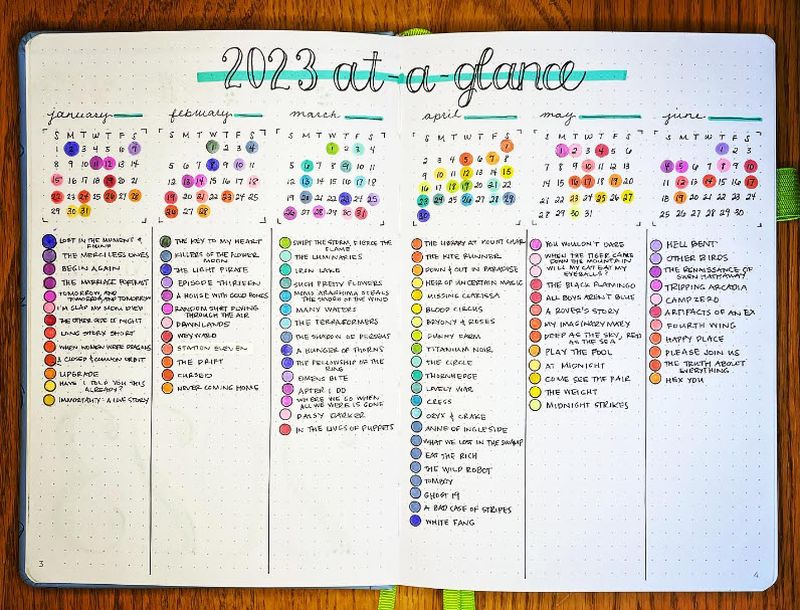 2023 at-a-glance
january
S M T W T F S
1 2 3 4 5 6 7
8 9 10 11 12 13 14
15 16 17 18 19 20 21
22 23 24 25 26 27 28
29 30 31
LOST IN THE MOMENT &
FOUND
THE MERCILESS ONES
BEGIN AGAIN
THE MARRIAGE PORTRAIT
TOMORROW, AND
TOMORROW, AND TOMORROW
I'M GLAD MY MOM DIED
THE OTHER SIDE OF NIGHT
LONG STORY SHORT
WHEN WOMEN WERE DRAGONS
A CLOSED & COMMON ORBIT
UPGRADE
HAVE I TOLD YOU THIS
ALREADY?
IMMORTALITY: A LOVE STORY
february
S M T W T F S
1 2 3 4
5 6 7 8 9 10 11
12 13 14 15 16 17 18
19 20 21 22 23 24 25
26 27 28
THE KEY TO MY HEART
KILLERS OF THE FLOWER
MOON
THE LIGHT PIRATE
EPISODE THIRTEEN
A HOUSE WITH GOOD BONES
RANDOM SHIT FLYING
THROUGH THE AIR
DAWNLANDS
WEYWARD
STATION ELEVEN
THE DRIFT
CURSED
NEVER COMING HOME
march
S M T W T F S
1 2 3 4
5 6 7 8 9 10 11
12 13 14 15 16 17 18
19 20 21 22 23 24 25
26 27 28 29 30 31
THE STORM, PIERCE THE
FLAME
THE LUMINARIES
IRON LAKE
SUCH PRETTY FLOWERS
THE SHADOW OF THE WIND
MANY WATERS
THE TERRAFORMERS
THE SHADOW OF PERSEUS
A HUNGER OF THORNS
THE FELLOWSHIP OF THE
RING
OMENS BITE
AFTER I DO
WHERE WE GO WHEN
ALL WE WERE IS GONE
DAISY DARKER
IN THE LIVES OF PUPPETS
april
S M T W T F S
1
2 3 4 5 6 7 8
9 10 11 12 13 14 15
16 17 18 19 20 21 22
23 24 25 26 27 28 29
30
THE LIBRARY AT MOUNT CHAR
THE KITE RUNNER
DOWN & OUT IN PARADISE
HEIR OF UNCERTAIN MAGIC
MISSING CLARISSA
BLOOD CIRCUS
BRYONY & ROSES
FUNNY FARM
TITANIUM NOIR
THE CIRCLE
THORNHEDGE
LOVELY WAR
CRESS
ORYX & CRAKE
ANNE OF INGLESIDE
WHAT WE LOST IN THE SWAMP
EAT THE RICH
THE WILD ROBOT
TOMBOY
GHOST 19
A BAD CASE OF STRIPES
WHITE FANG
may
S M T W T F S
1 2 3 4 5 6
7 8 9 10 11 12 13
14 15 16 17 18 19 20
21 22 23 24 25 26 27
28 29 30 31
YOU WOULDN'T DARE
WHEN THE TIGER CAME
DOWN THE MOUNTAIN
WILL MY CAT EAT MY
EYEBALLS?
THE BLACK FLAMINGO
ALL BOYS AREN'T BLUE
A ROVER'S STORY
MY IMAGINARY MARY
DEEP AS THE SKY, RED
AS THE SEA
PLAY THE FOOL
AT MIDNIGHT
COME SEE THE FAIR
THE WEIGHT
MIDNIGHT STRIKES
june
S M T W T F S
1 2 3
4 5 6 7 8 9 10
11 12 13 14 15 16 17
18 19 20 21 22 23 24
25 26 27 28 29 30
HELL BENT
OTHER BIRDS
THE RENAISSANCE OF
GWEN HATHAWAY
TRIPPING ARCADIA
CAMP ZERO
ARTIFACTS OF AN EX
FOURTH WING
HAPPY PLACE
PLEASE JOIN US
THE TRUTH ABOUT
EVERYTHING
HEX YOU
3
4